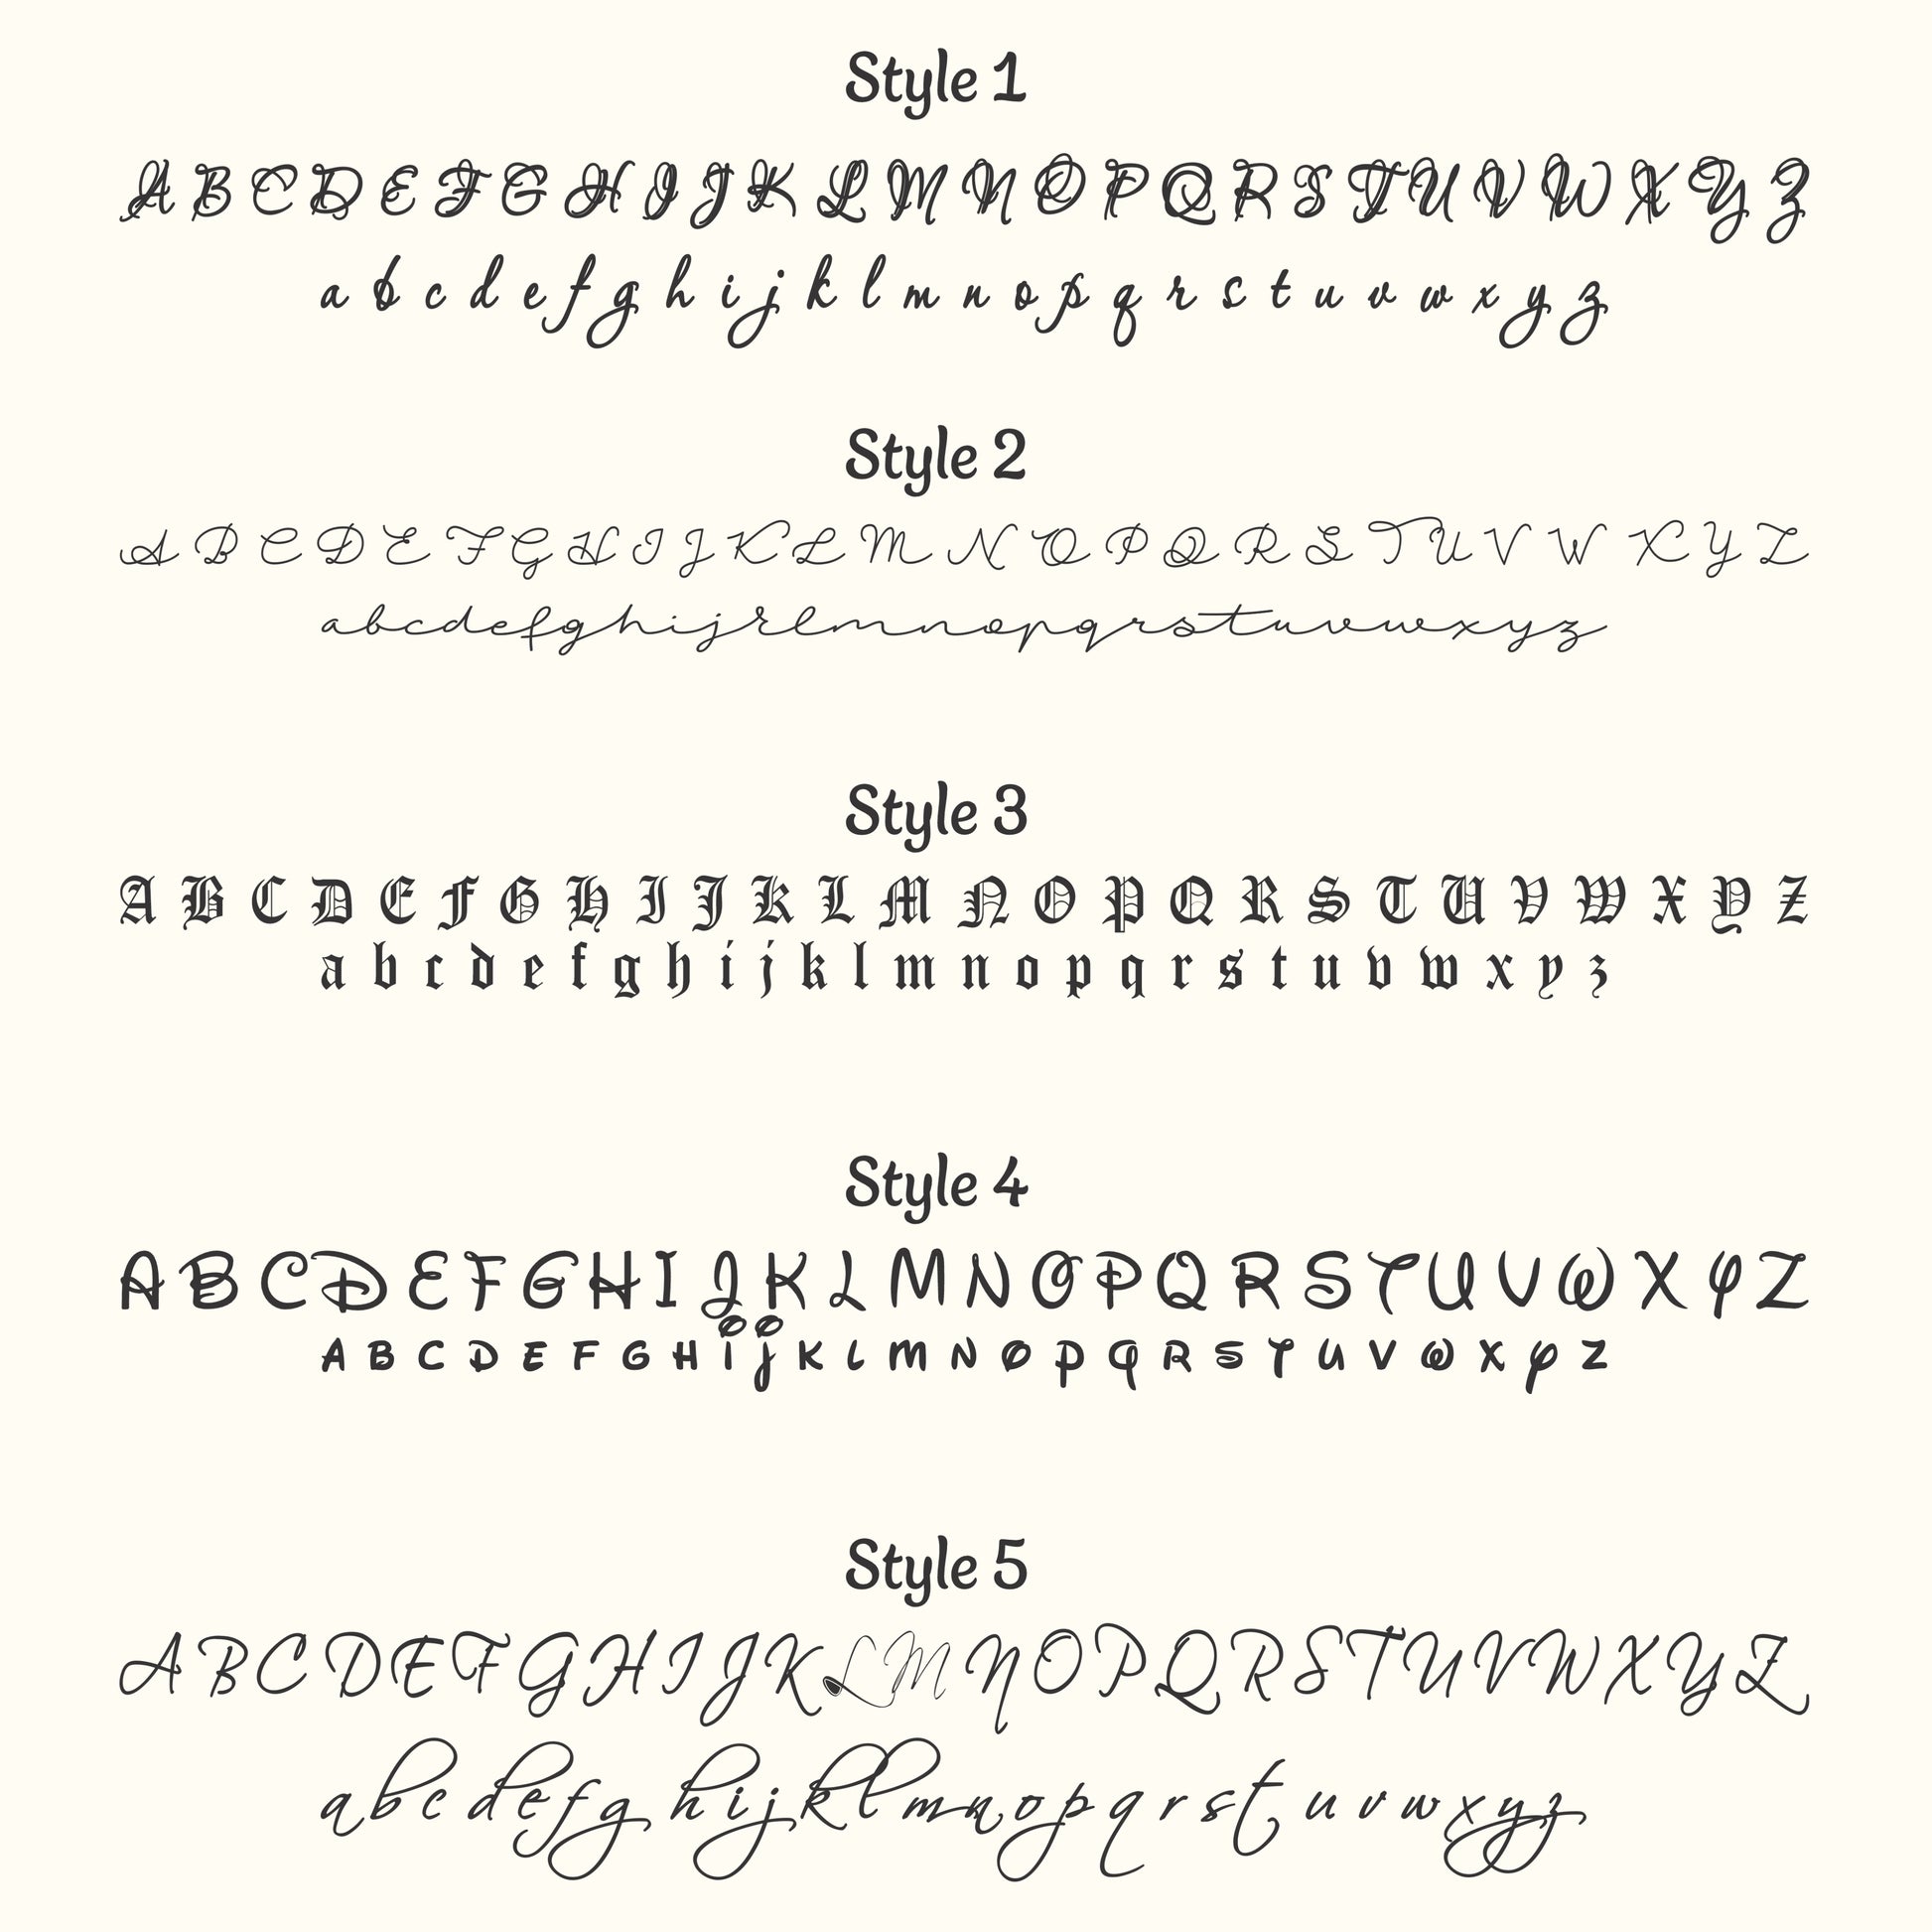 Style 1
A B C D E F G H I J K L M N O P Q R S T U V W X Y Z
a b c d e f g h i j k l m n o p q r s t u v w x y z
Style 2
A B C D E F G H I J K L M N O P Q R S T U V W X Y Z
a b c d e f g h i j k l m n o p q r s t u v w x y z
Style 3
A B C D E F G H I J K L M N O P Q R S T U V W X Y Z
a b c d e f g h i j k l m n o p q r s t u v w x y z
Style 4
A B C D E F G H I J K L M N O P Q R S T U V W X Y Z
A B C D E F G H i j K L M N O P Q R S T U V W X Y Z
Style 5
A B C D E F G H I J K L M N O P Q R S T U V W X Y Z
a b c d e f g h i j k l m n o p q r s t u v w x y z